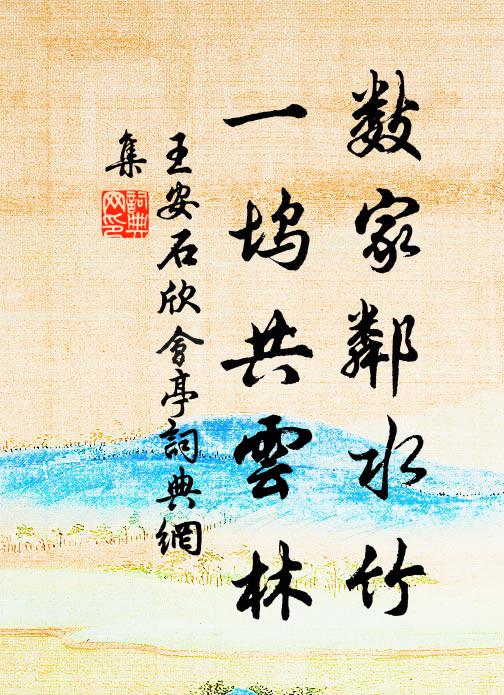 數家鄰水竹
一塢共雲林
王安石欣會亭詞典網
集
詞典网印